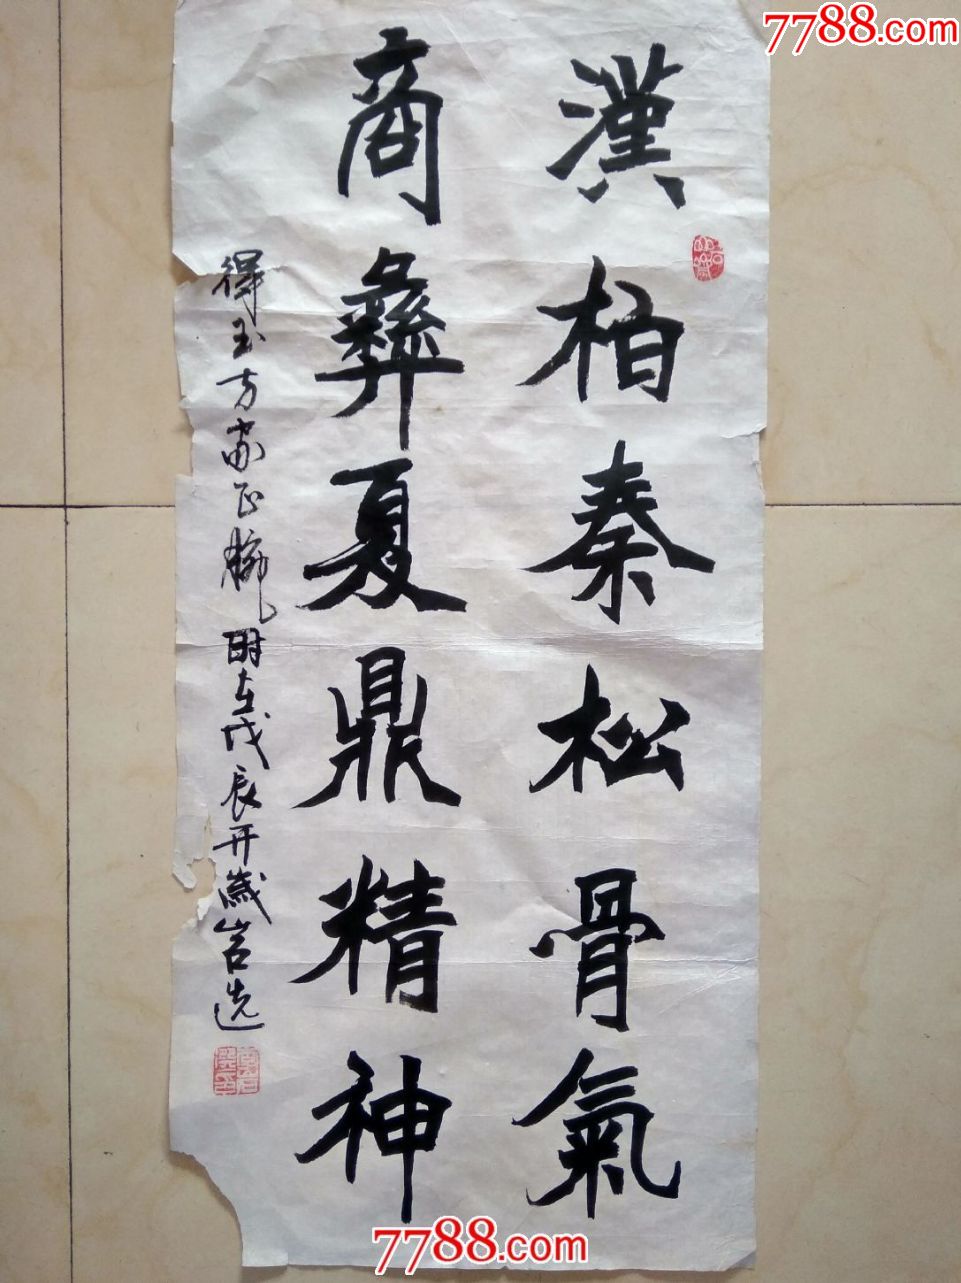 7788.com
漢柏秦松骨氣
商彝夏鼎精神
得玉方家正腕时在戊辰开歲岩选
7788.com